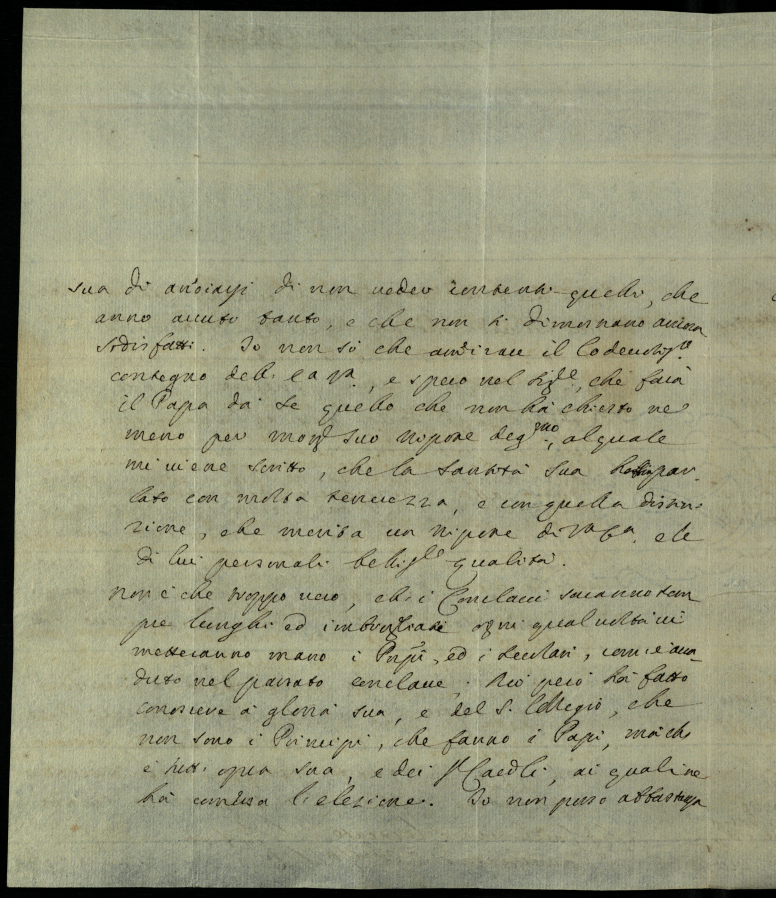 sua di an̄oiarsi di non veder contenti quelli, che
anno avuto tanto, e che non si dimostrano ancora
sodisfatti. Io non so che am̄irare il lodevoliss.mo
contegno dell. e spero nel che farà
il Papa da se quello che non ha chiesto ne
meno per mons.r suo nipote deg.mo, al quale
mi viene scritto, che la Santità Sua par-
lato con molta tenerezza, e con quella distin-
zione, che merita un nipote di e le
di lui personali bellis.me qualità.
Non è che troppo vero, che i Conclavi saranno sem
pre lunghi ed imbrogliati ogni qual volta vi
metteranno mano i ed i secolari, com'è acca-
duto nel passato conclave. però ha fatto
conoscere a gloria sua, e del S. Collegio, che
non sono i Principi, che fanno i Papi, mà che
è tutt. opera sua, e dei S.ri Cardli, ai quali ne
hà com̄essa l'elezione. Io non posso abbastanza